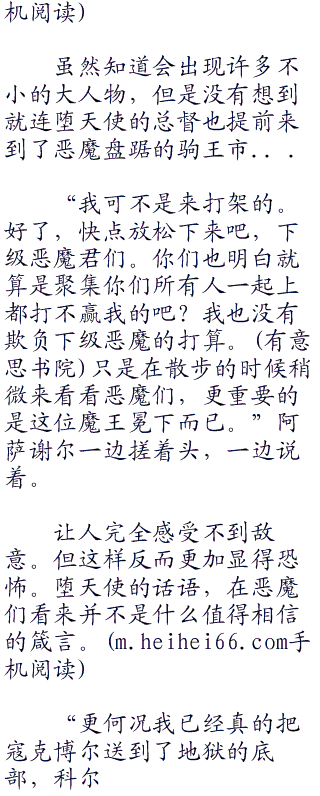 机阅读)
虽然知道会出现许多不
小的大人物，但是没有想到
就连堕天使的总督也提前来
到了恶魔盘踞的驹王市...
“我可不是来打架的。
好了，快点放松下来吧，下
级恶魔君们。你们也明白就
算是聚集你们所有人一起上
都打不赢我的吧？我也没有
欺负下级恶魔的打算。(有意
思书院)只是在散步的时候稍
微来看看恶魔们，更重要的
是这位魔王冕下而已。”阿
萨谢尔一边搓着头，一边说
着。
让人完全感受不到敌
意。但这样反而更加显得恐
怖。堕天使的话语，在恶魔
们看来并不是什么值得相信
的箴言。(m.heihei66.com手
机阅读)
“更何况我已经真的把
寇克博尔送到了地狱的底
部，科尔